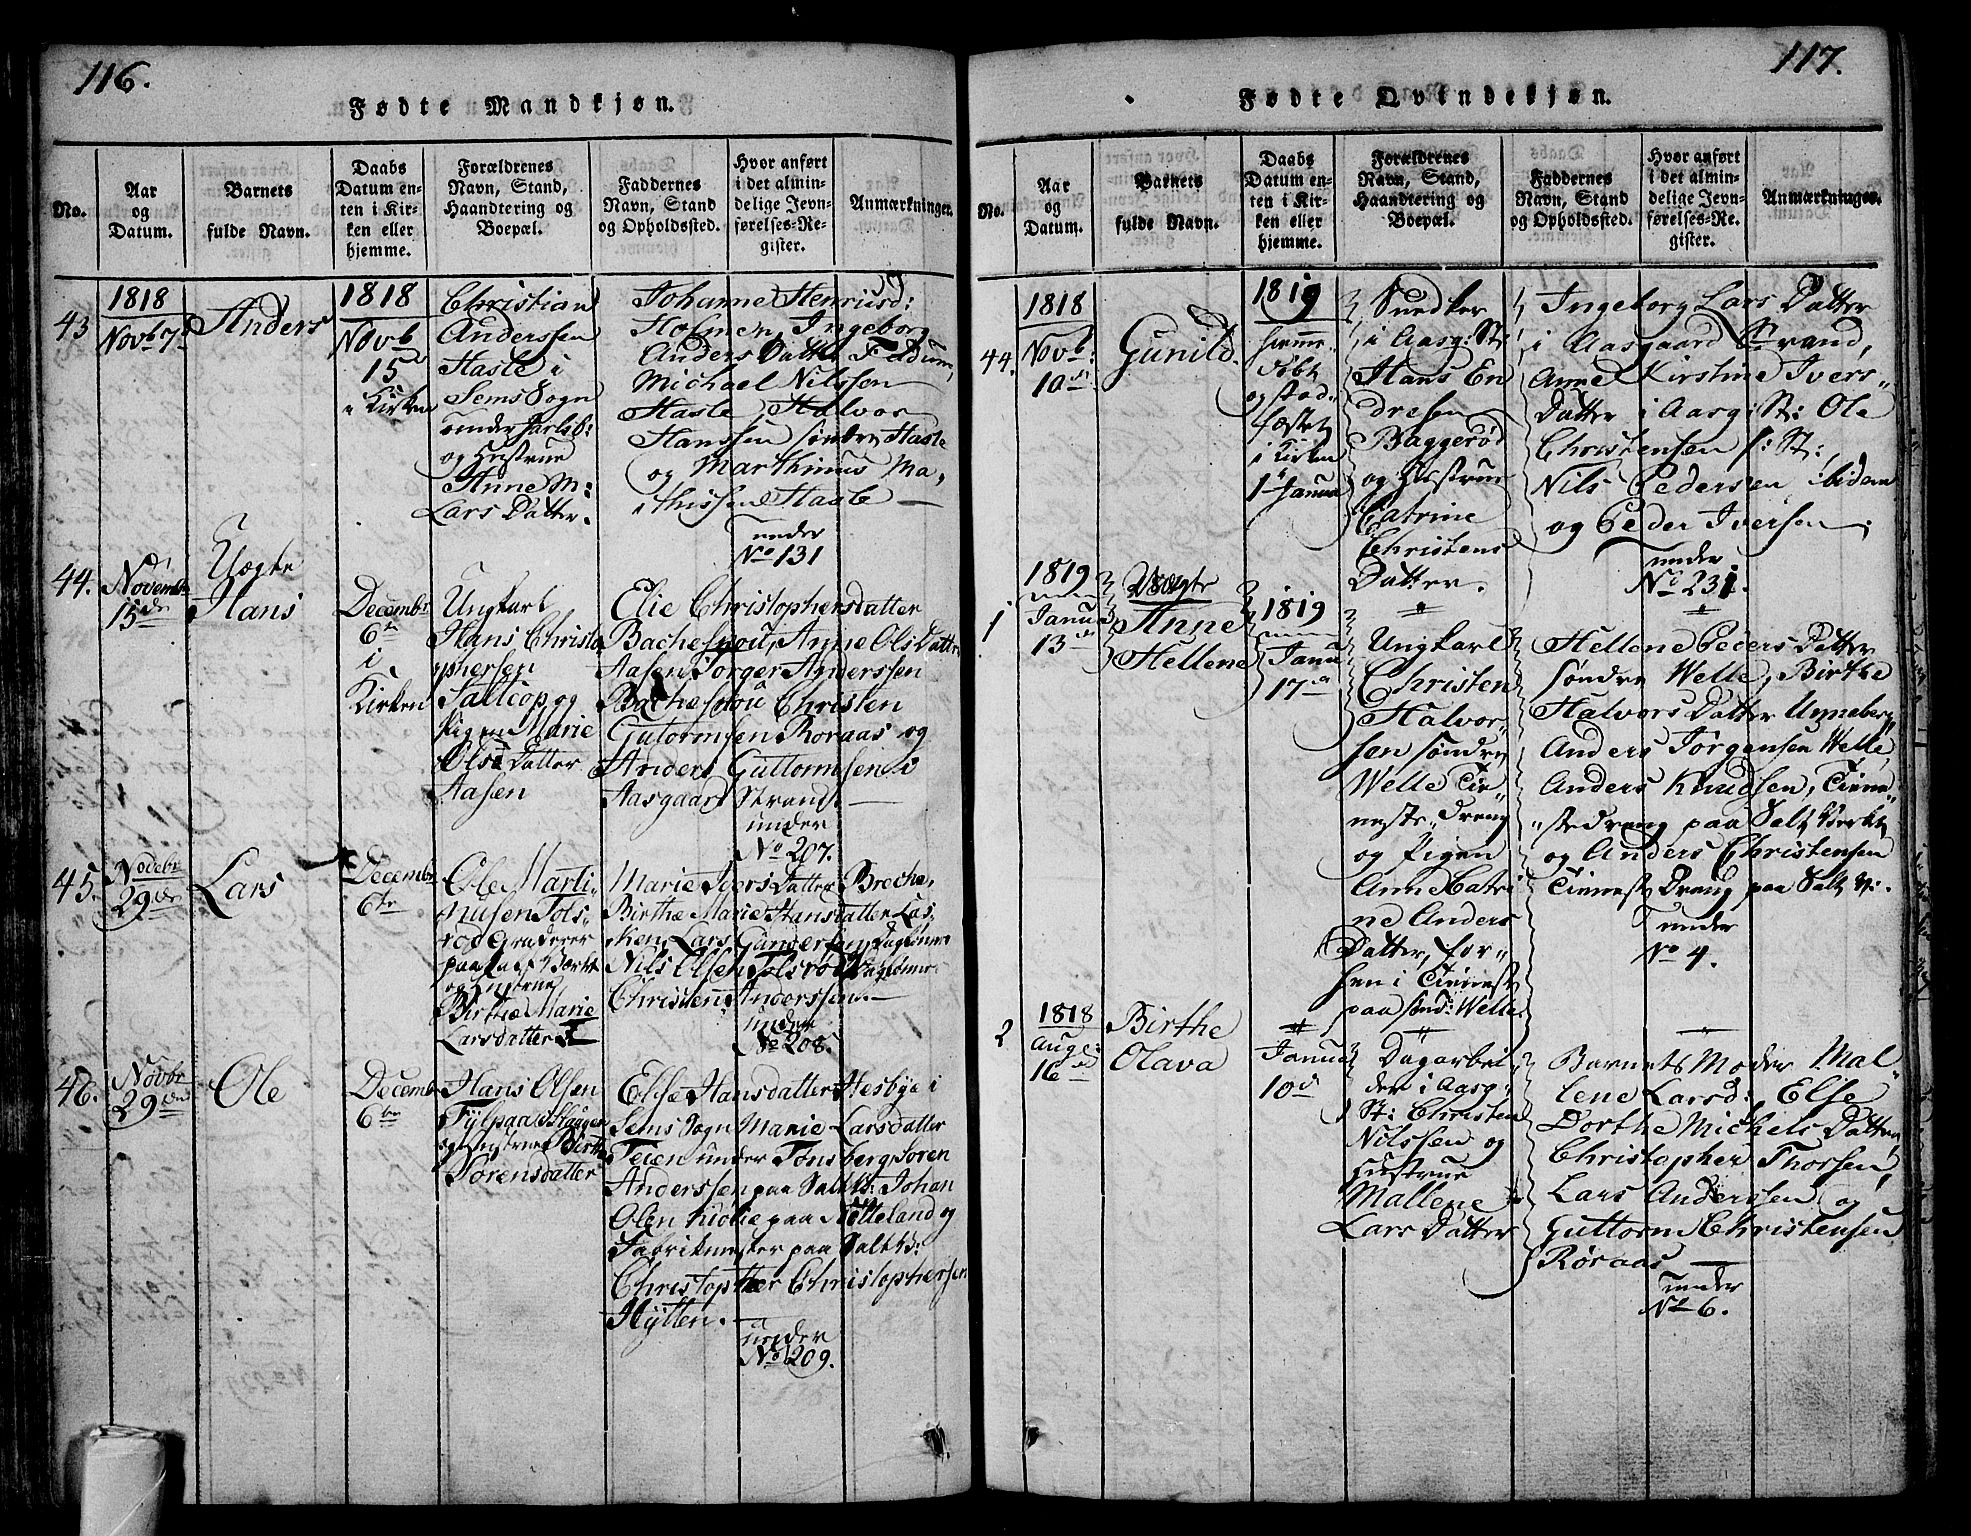 116.
Fødte Mandkjøn.
No.
Aar
og
Datum.
Barnets
fulde Navn.
Daabs
Datum en-
ten i Kir-
ken eller
hjemme.
Forældrenes
Navn, Stand,
Haandtering og
Boepæl.
Faddernes
Navn, Stand
og Opholdssted.
Hvor anført
i det almin-
delige Jevn-
førelses-Re-
gister.
Anmærkninger.
43
1818
Novb 7de
Anders
1818
Novb
15de
i Kirken
Christian
Anderssen
Hasle i
Sems Sogn
under Jarlsb:
og Hustrue
Anne M:
Lars Datter.
Johanne Henriksd:
Holmen, Ingeborg
Anders Datter Feldum,
Michael Nilssen
Hasle, Halvor
Hanssen søndre Hasle
og Marthinus Ma-
thissen Hasle
under
No 131
44.
Novembr
15de
Uægte
Hans
Decembr
6te
i
Kirken
Ungkarl
Hans Christo
phersen
og
Pigen Marie
Ols Datter
Aasen
Elie Christophersdatter
Anne Ols Datter
Aasen Jørger Anderssen
Christen
Gutormsen Roraas og
Anders Guttormsen i
Aasgaard Strand.
under
No 207.
45.
Novebr
29de
Lars
Decembr
6te
Ole Marti-
nusen Tols-
rod Graderer
paa Salt Værket
og Hustrue
Birthe Marie
Larsdatter
Marie Ivers Datter Breche,
Birthe Marie Hansdatter Las,
ken, Lars Gundersen Dagløner
Nils Olsen Tolsrod Dagløner
Christen Anderssen.
under
No 208.
46.
Novbr
29de
Ole
Decemb
6te
Hans Olsen
og Hustrue Birthe
Sørensdatter
Else Hansdatter Hesbye i
Sems Sogn Marie Larsdatter
Teien under Tønsberg, Søren
Anderssen paa Saltv: Johan
Olen paa Nøtteland og
Fabrikmester paa Saltv:
Christopher Christophersen
Hytten.
under
No 209.
117.
Fødte Qvindekjøn.
No.
Aar
og
Datum.
Barnets
fulde Navn.
Daabs
Datum en-
ten i Kir-
ken eller
hjemme.
Forældrenes
Navn, Stand,
Haandtering og
Boepæl.
Faddernes
Navn, Stand
og Opholdssted.
Hvor anført
i det almin-
delige Jevn-
førelses-Re-
gister.
Anmærkninger.
44.
1818
Novb:
10de
Gunild.
1819
hjemme-
døbt
og stad-
fæstet
i Kirken
1te Janua
Snedker
i Aasg: St:
Hans En
dresen
Baggerød
og Hustrue
Catrine
Christens
Datter.
Ingeborg Lars Datter
i Aasgaard Strand,
Anne Kirstine Ivers-
Datter i Aasg: St: Ole
Christensen i: St:
Nils Pedersen ibidem
og Peder Iversen.
under
No 231.
1
1819
Janua
13de
Uægte
Anne
Hellene
1819
Janua
17de
Ungkarl
Christen
Halvor-
sen søndre
Welle Tie-
neste-Dreng
og Pigen
Anne Catri
ne Anders
Datter, for-
hen i Tienest
paa sønd: Welle.
Hellene Peders Datter
søndre Welle, Birthe
Halvors Datter Unneberg,
Anders Jørgensen Welle,
Anders Knudsen, Tiene-
stedreng paa Salt Værket
og Anders Christensen
Tienest Dreng paa Salt V:
under
No 4.
2
1818
Aug:
16de
Birthe
Olava
Janua
10de
Dagarbei
der i Aasg:
St: Christen
Nilssen og
Hustrue
Mallene
Lars Datter
Barnets Moder Mal-
lene Larsd: Else
Dorthe Michels Datter,
Christopher Thorsen,
Lars Anderssen og
Guttorm Christensen
Røraas
under
No 6.